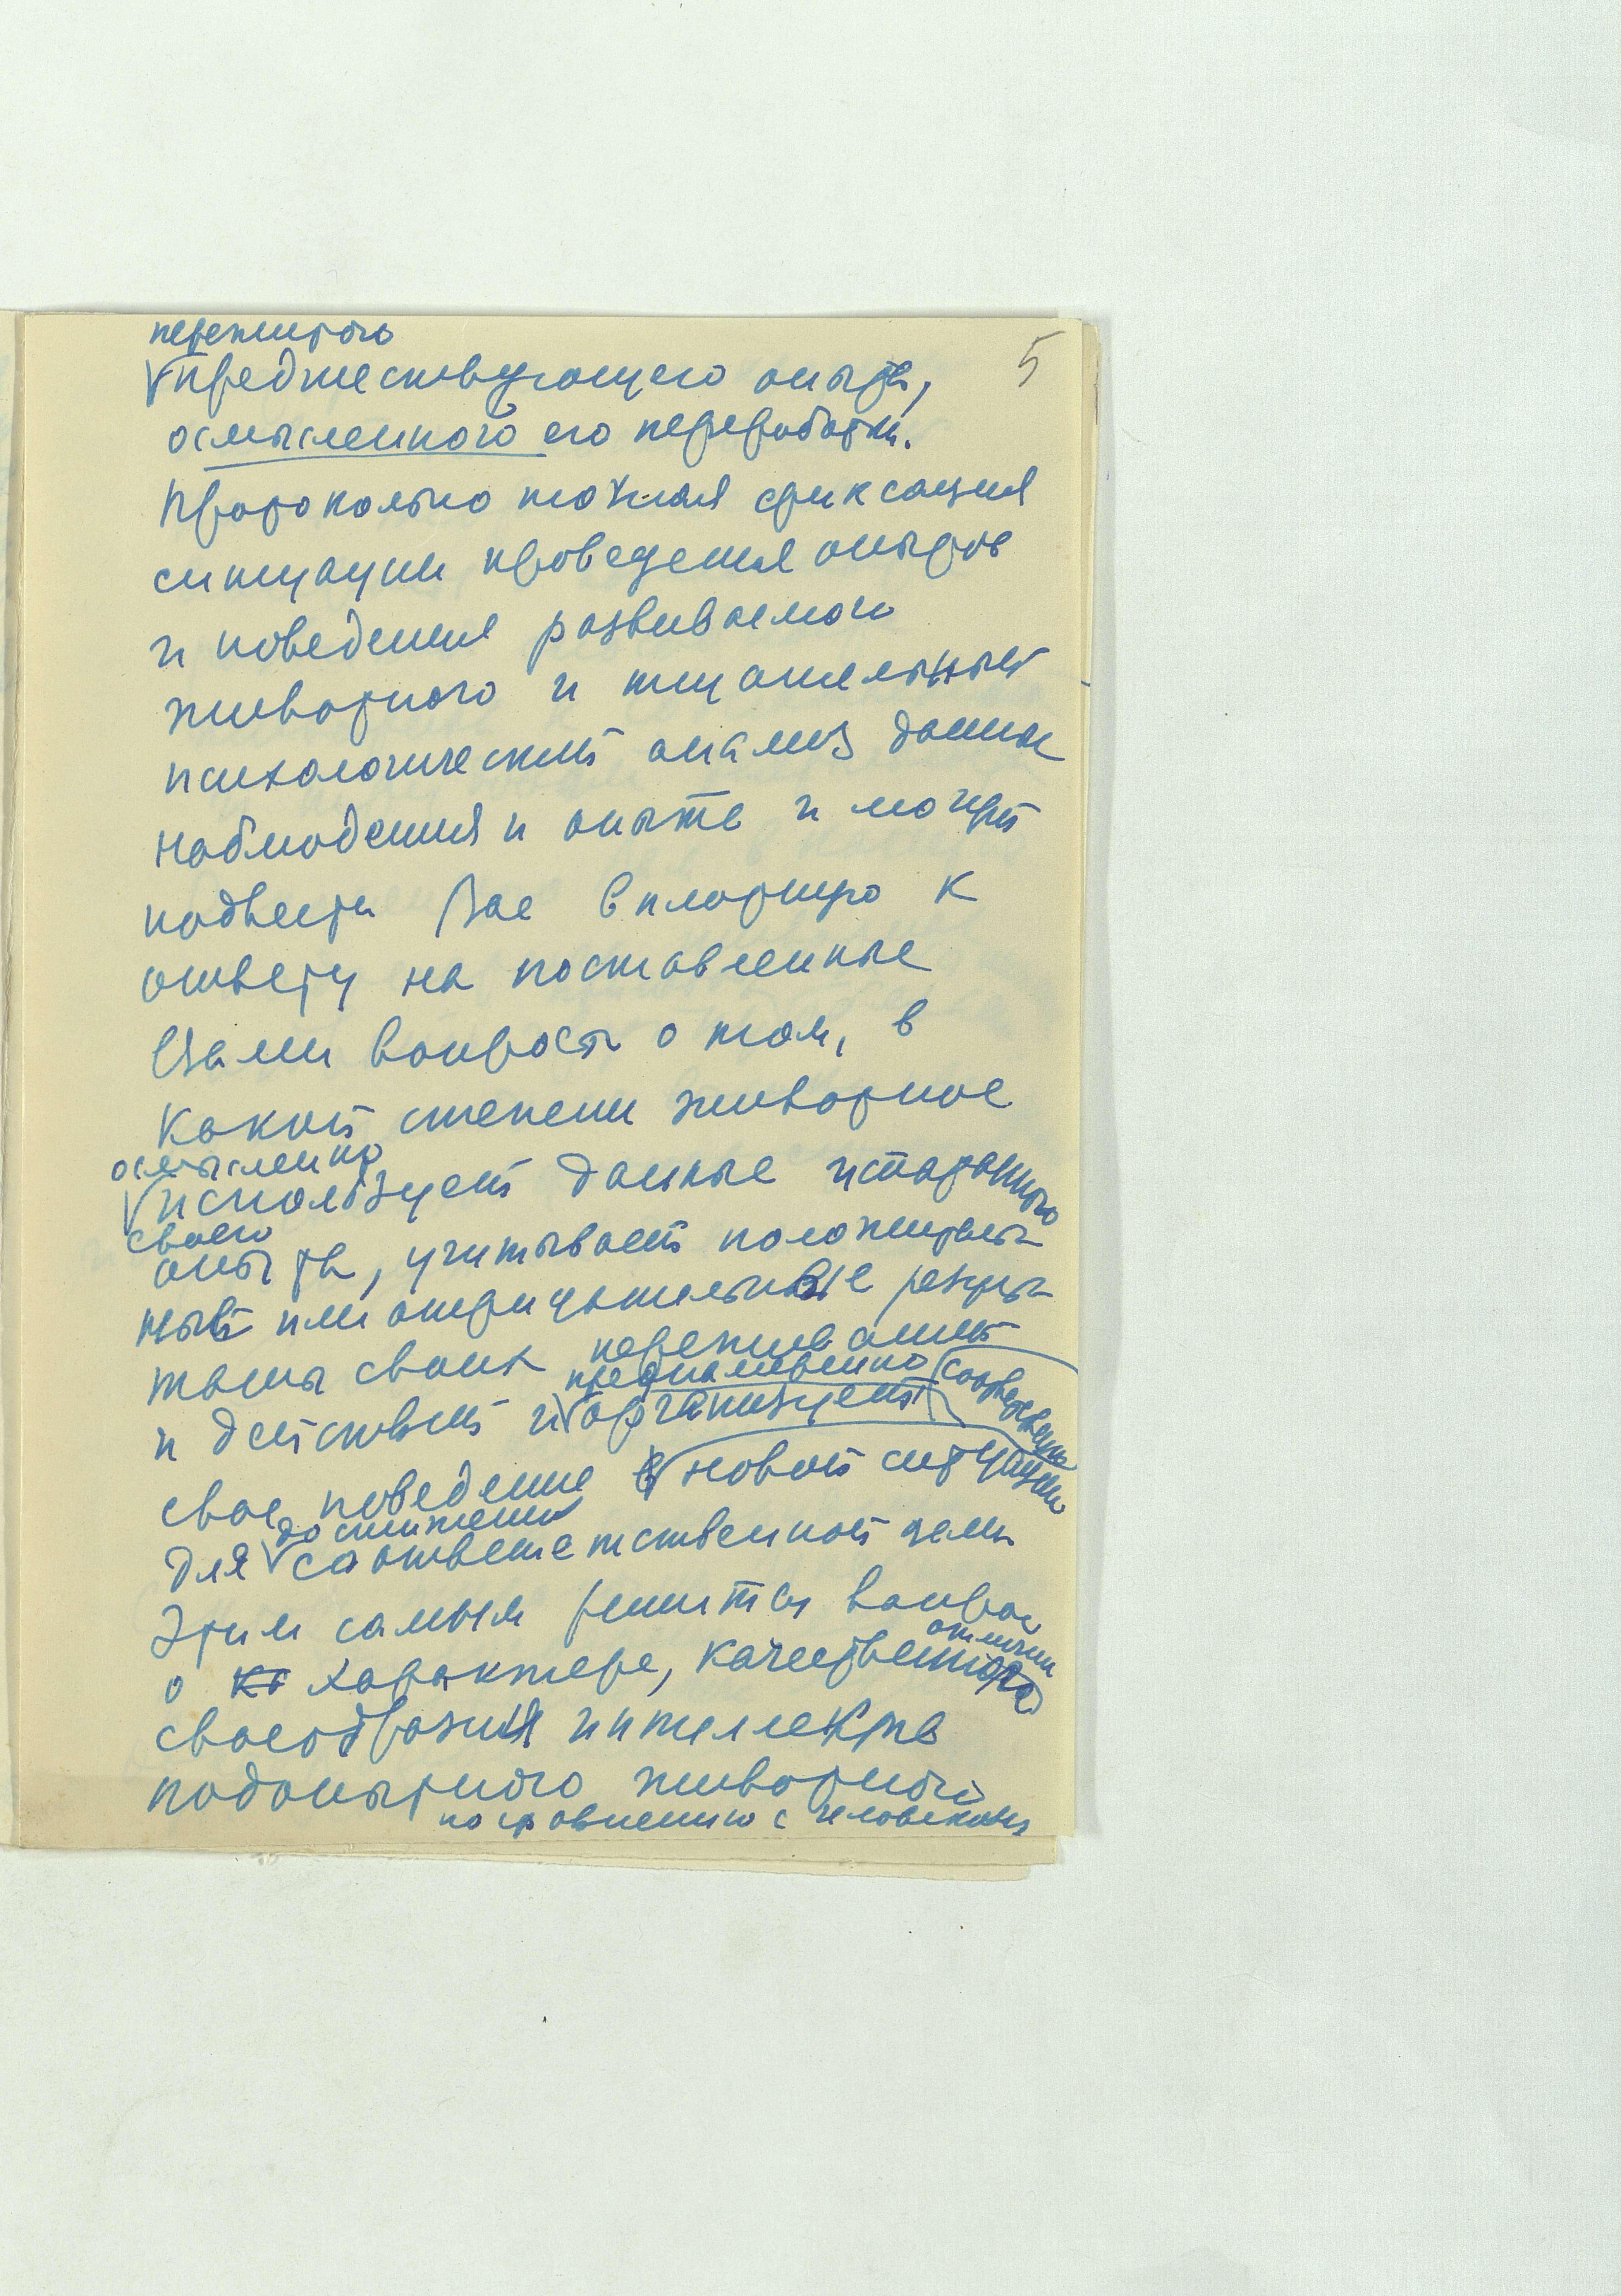 5
пережитого
предшествующего опыта,
осмысленного его переработки.
Протокольно точная фиксация
ситуации проведения опытов
и поведения развиваемого
животного и тщательный
психологический анализ данных
наблюдения и опыта и могут
подвести Вас вплотную к
ответу на поставленные
Вами вопросы о том, в
какой степени животное
осмысленно
использует данные
своего
опыта, учитывает положитель-
ный или отрицательные резуль-
таты своих переживаний
преднамеренно
и действий и организует
свое поведение в новой ситуации
достижения
для соответственной цели
Этим самым решится вопрос
отличии
о характере, качественного
своеобразия интеллекта
подопытного животного
по сравнению с человеком